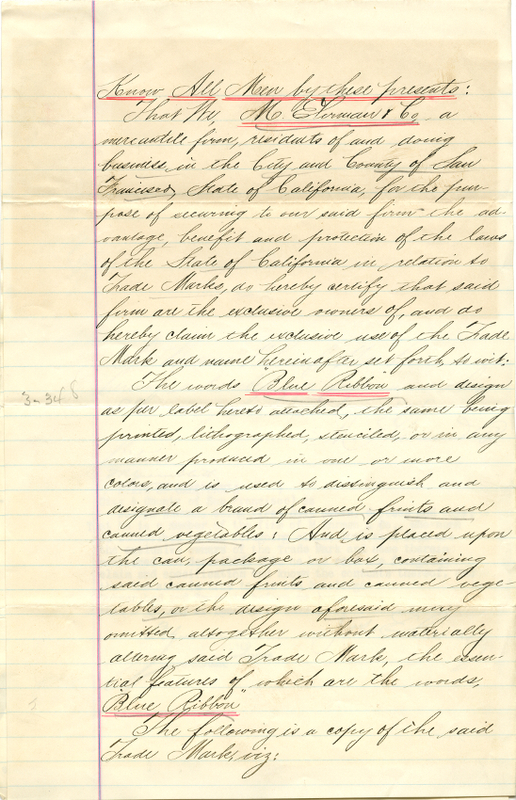 Know All Men by these presents:
That We, M. Ehrman & Co, a
mercantile firm, residents of and doing
business, in the City and County of San
Francisco, State of California, for the pur-
pose of securing to our said firm the ad-
vantage, benefit and protection of the laws
of the State of California in relation to
Trade Marks, do hereby certify that said
firm are the exclusive owners of, and do
hereby claim the exclusive use of the Trade
Mark and name hereinafter set forth, to wit:
The words Blue Ribbon and design
as per label hereto attached, the same being
printed, lithographed, stenciled, or in any
manner produced in one or more
colors, and is used to distinguish and
designate a brand of canned fruits and
canned vegetables: And is placed upon
the can, package or box, containing
said canned fruits and canned vege-
tables, or the design aforesaid may
omitted, altogether without materially
altering said Trade Mark, the essen-
tial features of which are the words,
"Blue Ribbon"
The following is a copy of the said
Trade Mark, viz: